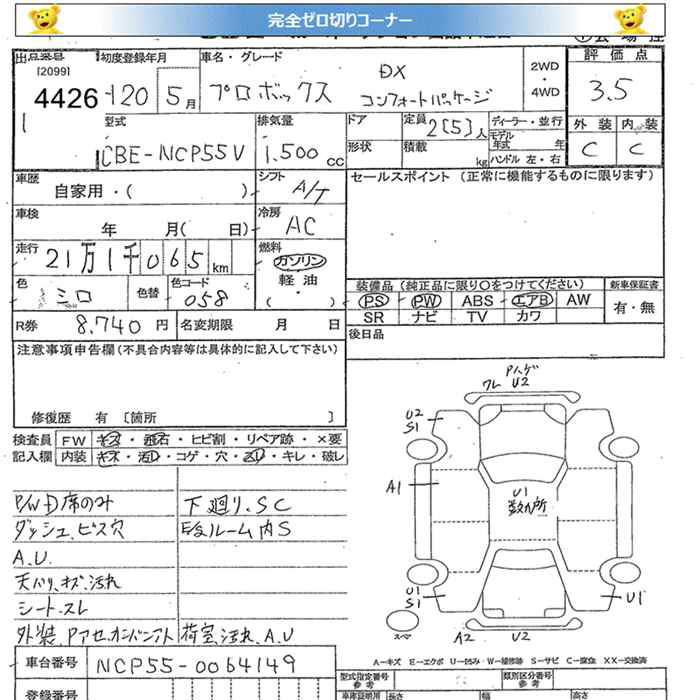 完全ゼロ切りコーナー
出品番号 初度登録年月 車名・グレード 2WD・4WD 評価点
[2099]
4426 H20 5月 プロボックス DX コンフォートパッケージ 3.5
型式 排気量 ドア 定員 2[5]人 ディーラー・並行 外装 内装
CBE-NCP55V 1.500cc 形状 積載 kg モデル年式 年 ハンドル 左・右 C C
車歴 シフト セールスポイント (正常に機能するものに限ります)
自家用・( ) A/T
車検 年 月( 日) 冷房 AC
走行 21万1千065km 燃料 ガソリン 軽油・( )
色 シロ 色替 色コード 058
装備品(純正品に限り○をつけてください) 新車保証書
PS PW ABS エアB AW 有・無
SR ナビ TV カワ
R券 8.740円 名変期限 月 日 後日品
注意事項申告欄(不具合内容等は具体的に記入して下さい)
修復歴 有 [箇所 ]
検査員 FW キズ・飛石・ヒビ割・リペア跡・×要
記入欄 内装 キズ・汚レ・コゲ・穴・スレ・キレ・破レ
P/W D席のみ 下廻り.SC
ダッシュ.ビス穴 ルーム内S
A.U.
天バリ.キズ.汚れ
シート.スレ
外装 荷室.汚れ.A.U
Pハゲ
ワレ U2
U2
S1
A1
U1
数ヵ所
U1
S1
U1
スペア
A2 U2
A-キズ E-エクボ U-凹み W-補修跡 S-サビ C-腐食 XX-交換済
車台番号 NCP55-0064149
型式指定番号 類別区分番号
参考 参考
登録番号 長さ 幅 高さ